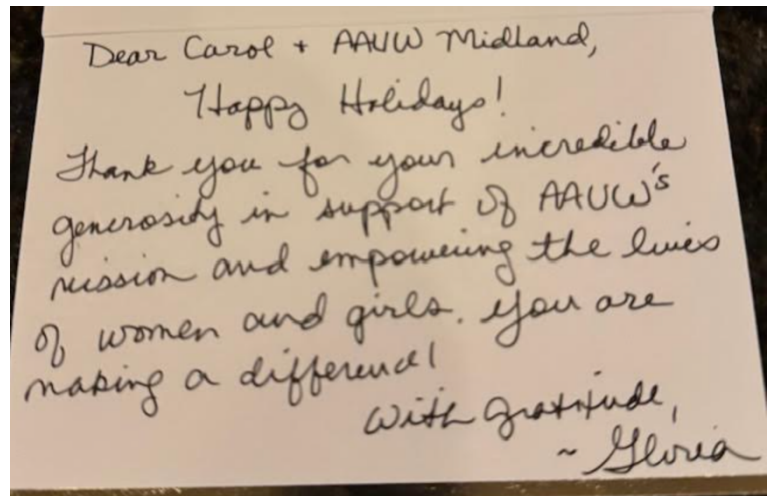 Dear Carol + AAUW Midland,
Happy Holidays!
Thank you for your incredible
generosity in support of AAUW's
mission and empowering the lives
of women and girls. You are
making a difference!
With gratitude,
~ Gloria